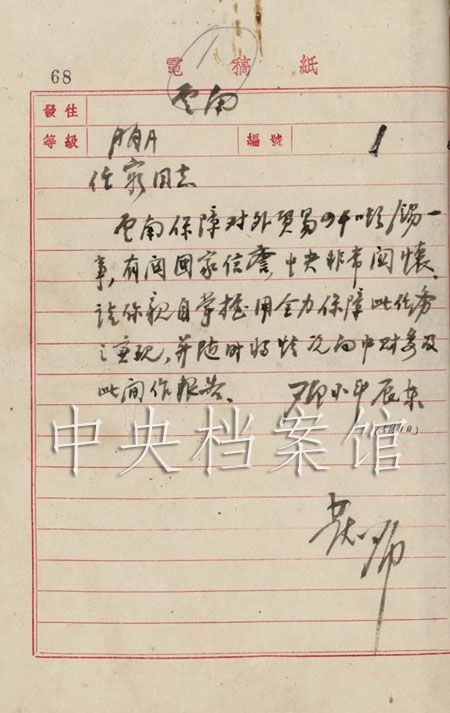 68
電稿紙
發往 云南
等級 AAA 編號 1
任穷同志
云南保障对外贸易四千吨锡一
事，有关国家信誉，中央非常关怀。
请你亲自掌握用全力保障此任务
之实现，并随时将情况向中财委及
此间作报告。 邓小平 辰东
中央档案馆